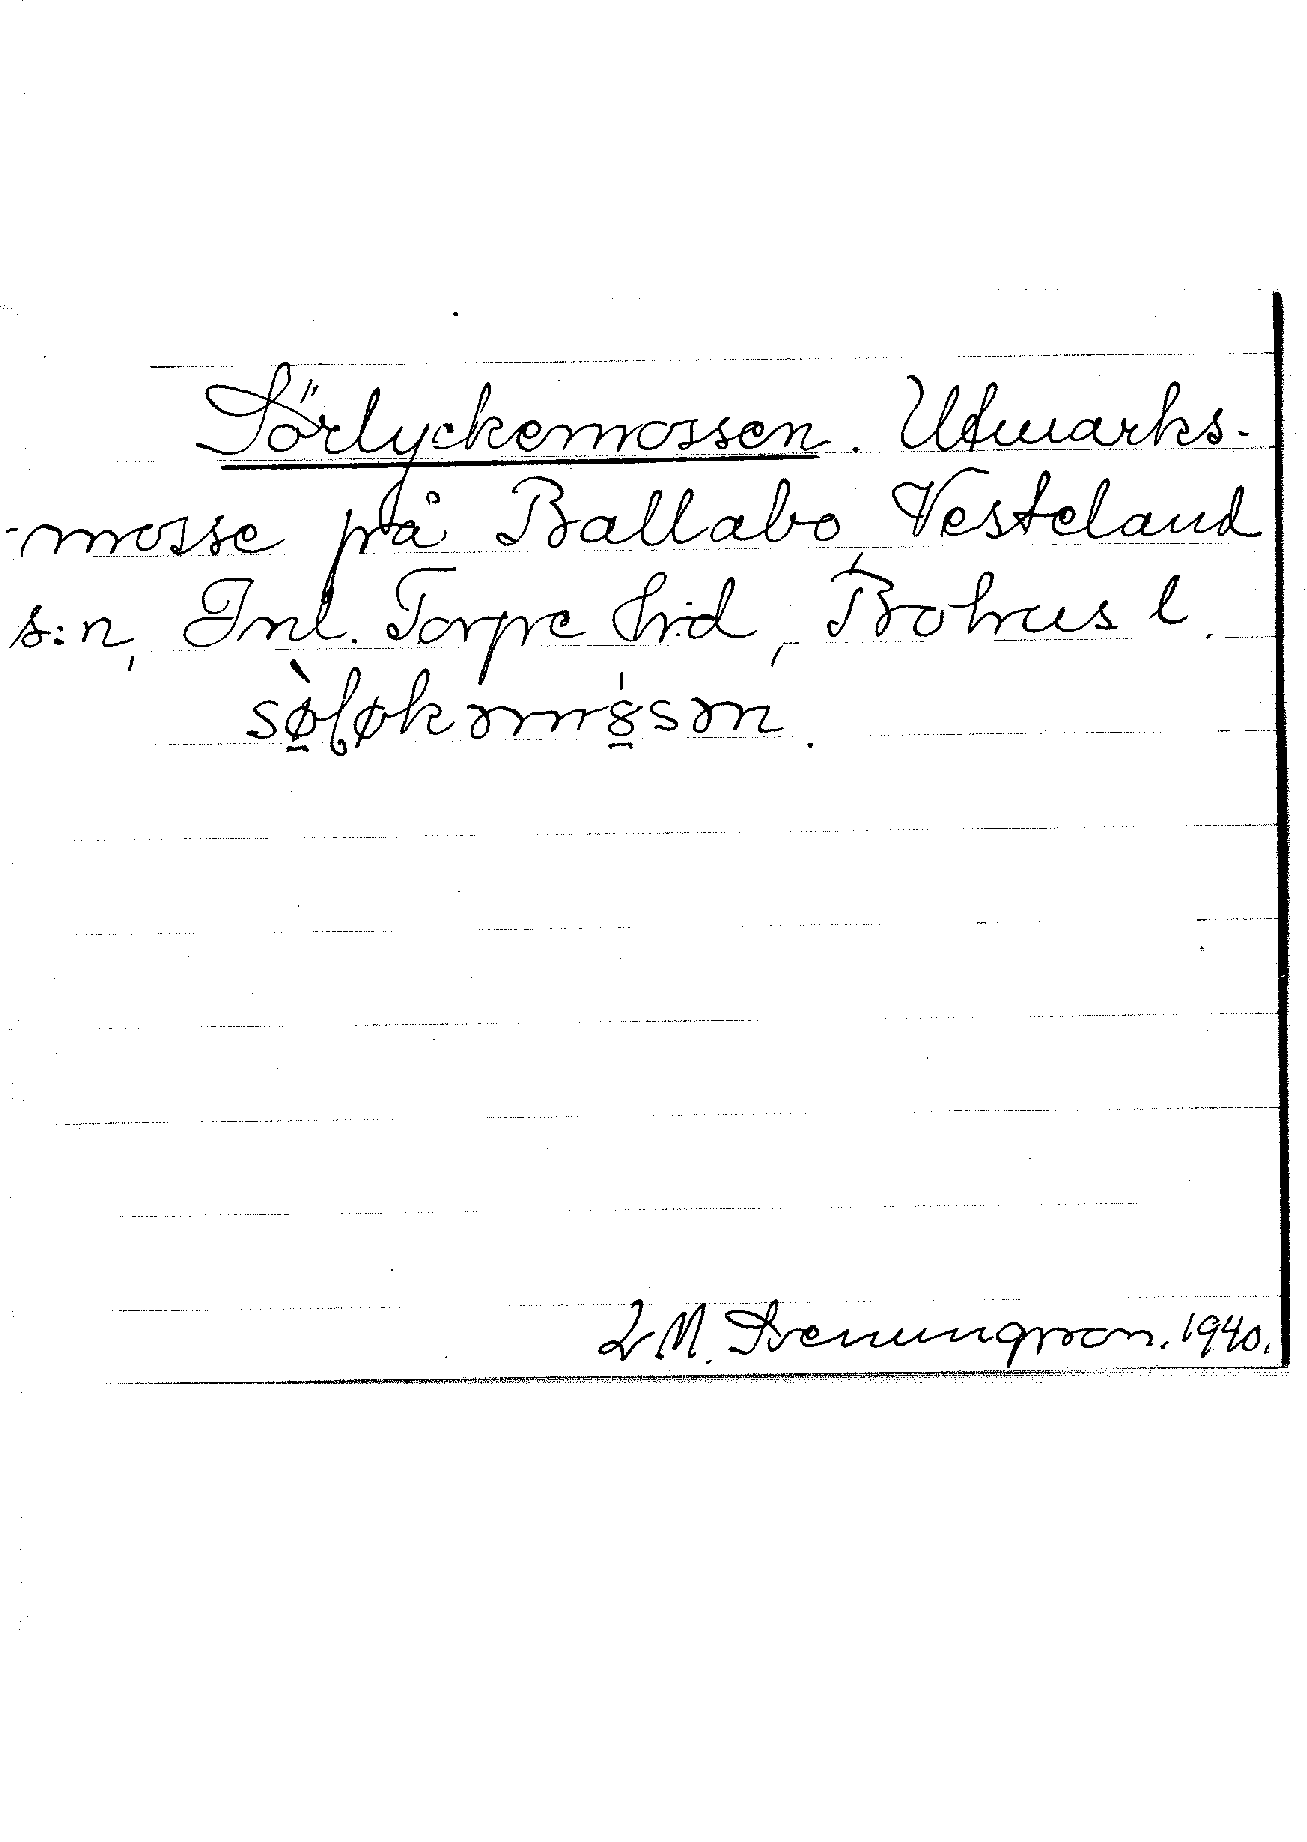 Sörlyckemossen. Utmarks-
-mosse på Ballabo, Vesteland
s:n, Inl. Torpe hrd, Bohus l.
sø̀ɭøkəmȣ́sən.
L M. Svenungsson. 1940.